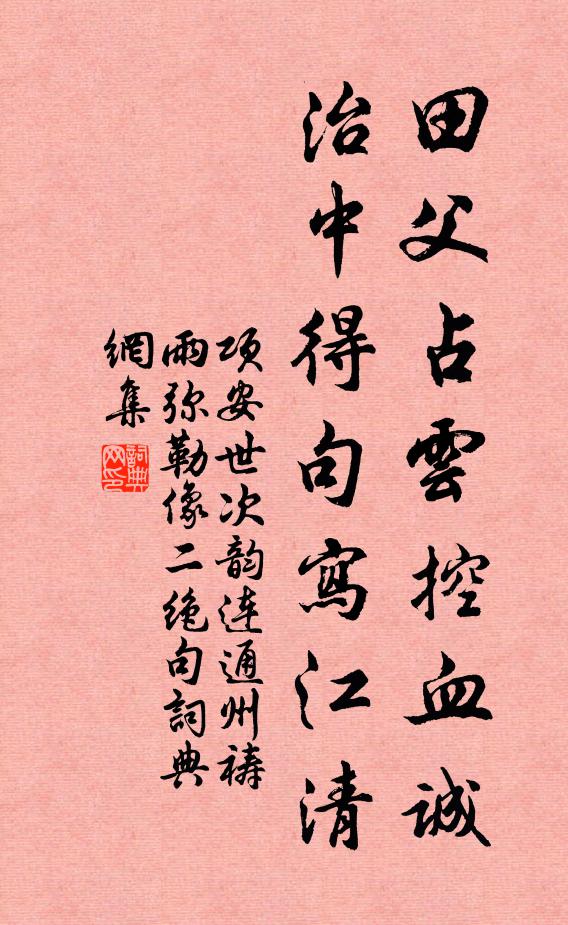 田父占雲控血誠
治中得句寫江清
项安世次韵连通州祷
雨弥勒像二绝句詞典
網集
詞典網印